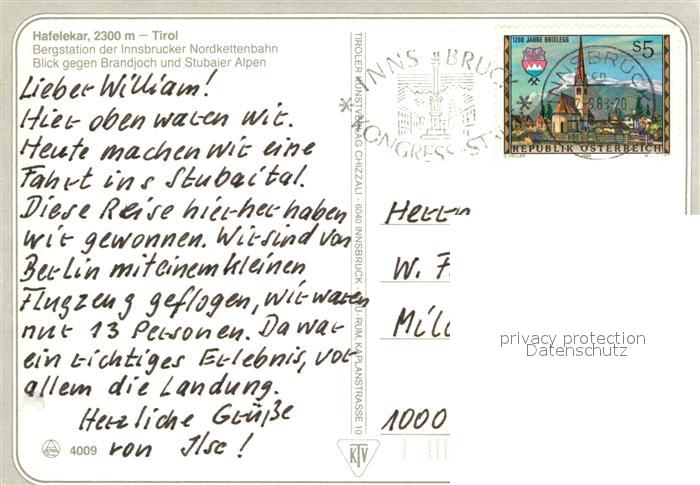 Hafelekar, 2300 m — Tirol
Bergstation der Innsbrucker Nordkettenbahn
Blick gegen Brandjoch und Stubaier Alpen
Lieber William!
Hier oben waren wir.
Heute machen wir eine
Fahrt ins Stubaital.
Diese Reise hierher haben
wir gewonnen. Wir sind von
Berlin mit einem kleinen
Flugzeug geflogen, wir waren
nur 13 Personen. Da war
ein richtiges Erlebnis, vor
allem die Landung.
Herzliche Grüße
von Ilse!
4009
TIROLER KUNSTVERLAG CHIZZALI · 6040 INNSBRUCK
RUM, KAPLANSTRASSE 10
KTV
INNSBRUCK
KONGRESS
1200 JAHRE BRIXLEGG
S5
REPUBLIK ÖSTERREICH
INNSBRUCK
Herrn
W.
1000
privacy protection
Datenschutz